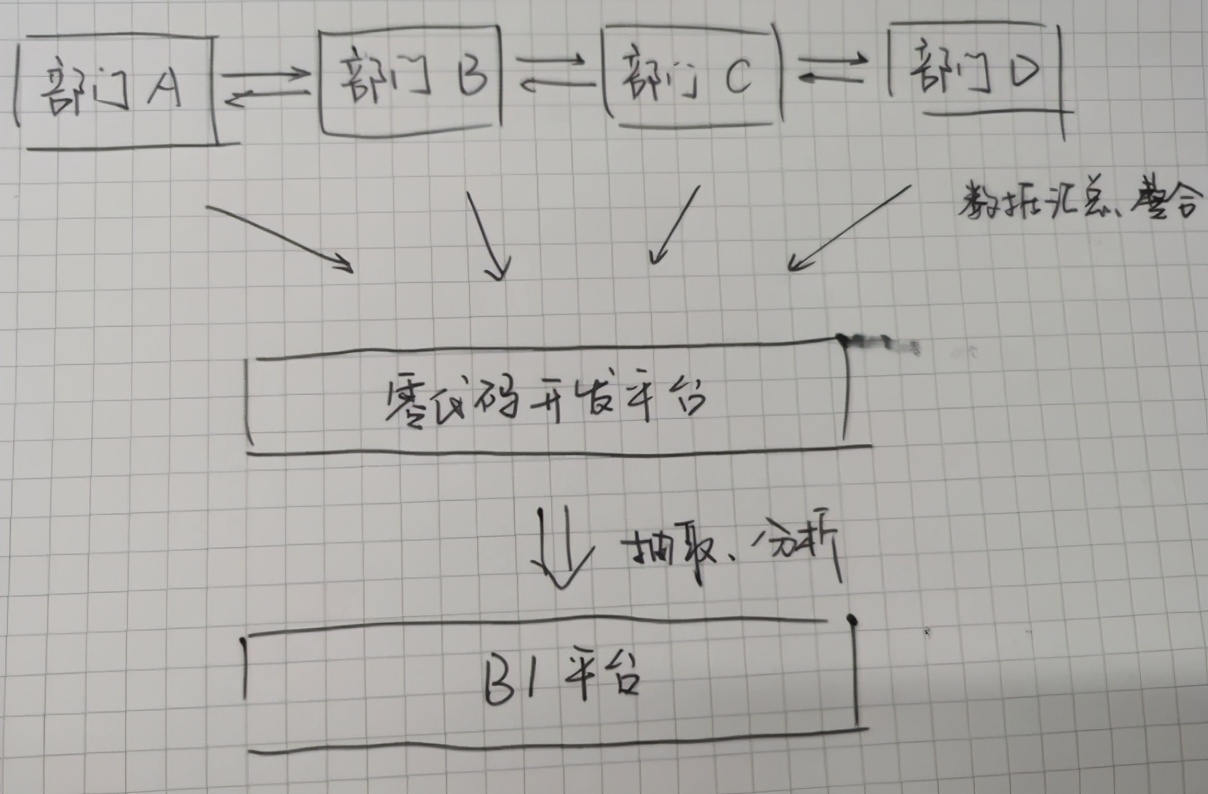 部门 A
部门 B
部门 C
部门 D
数据汇总、整合
零代码开发平台
抽取、分析
BI 平台